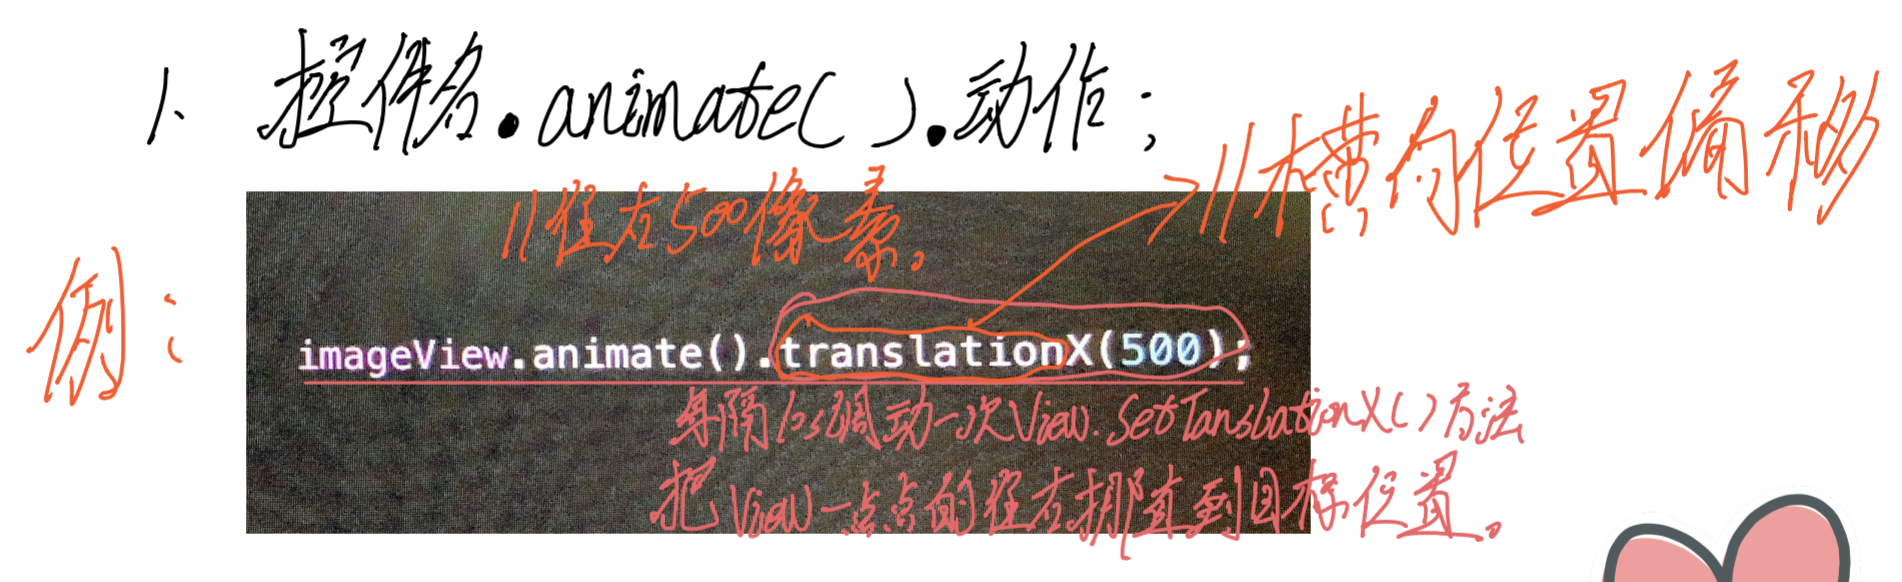 1、控件名.animate( ).动作；
//往右500像素。
//横向位置偏移
例：
imageView.animate().translationX(500);
每隔1s调动一次View.SetTanslationX()方法
把View一点点的往右挪直到目标位置。